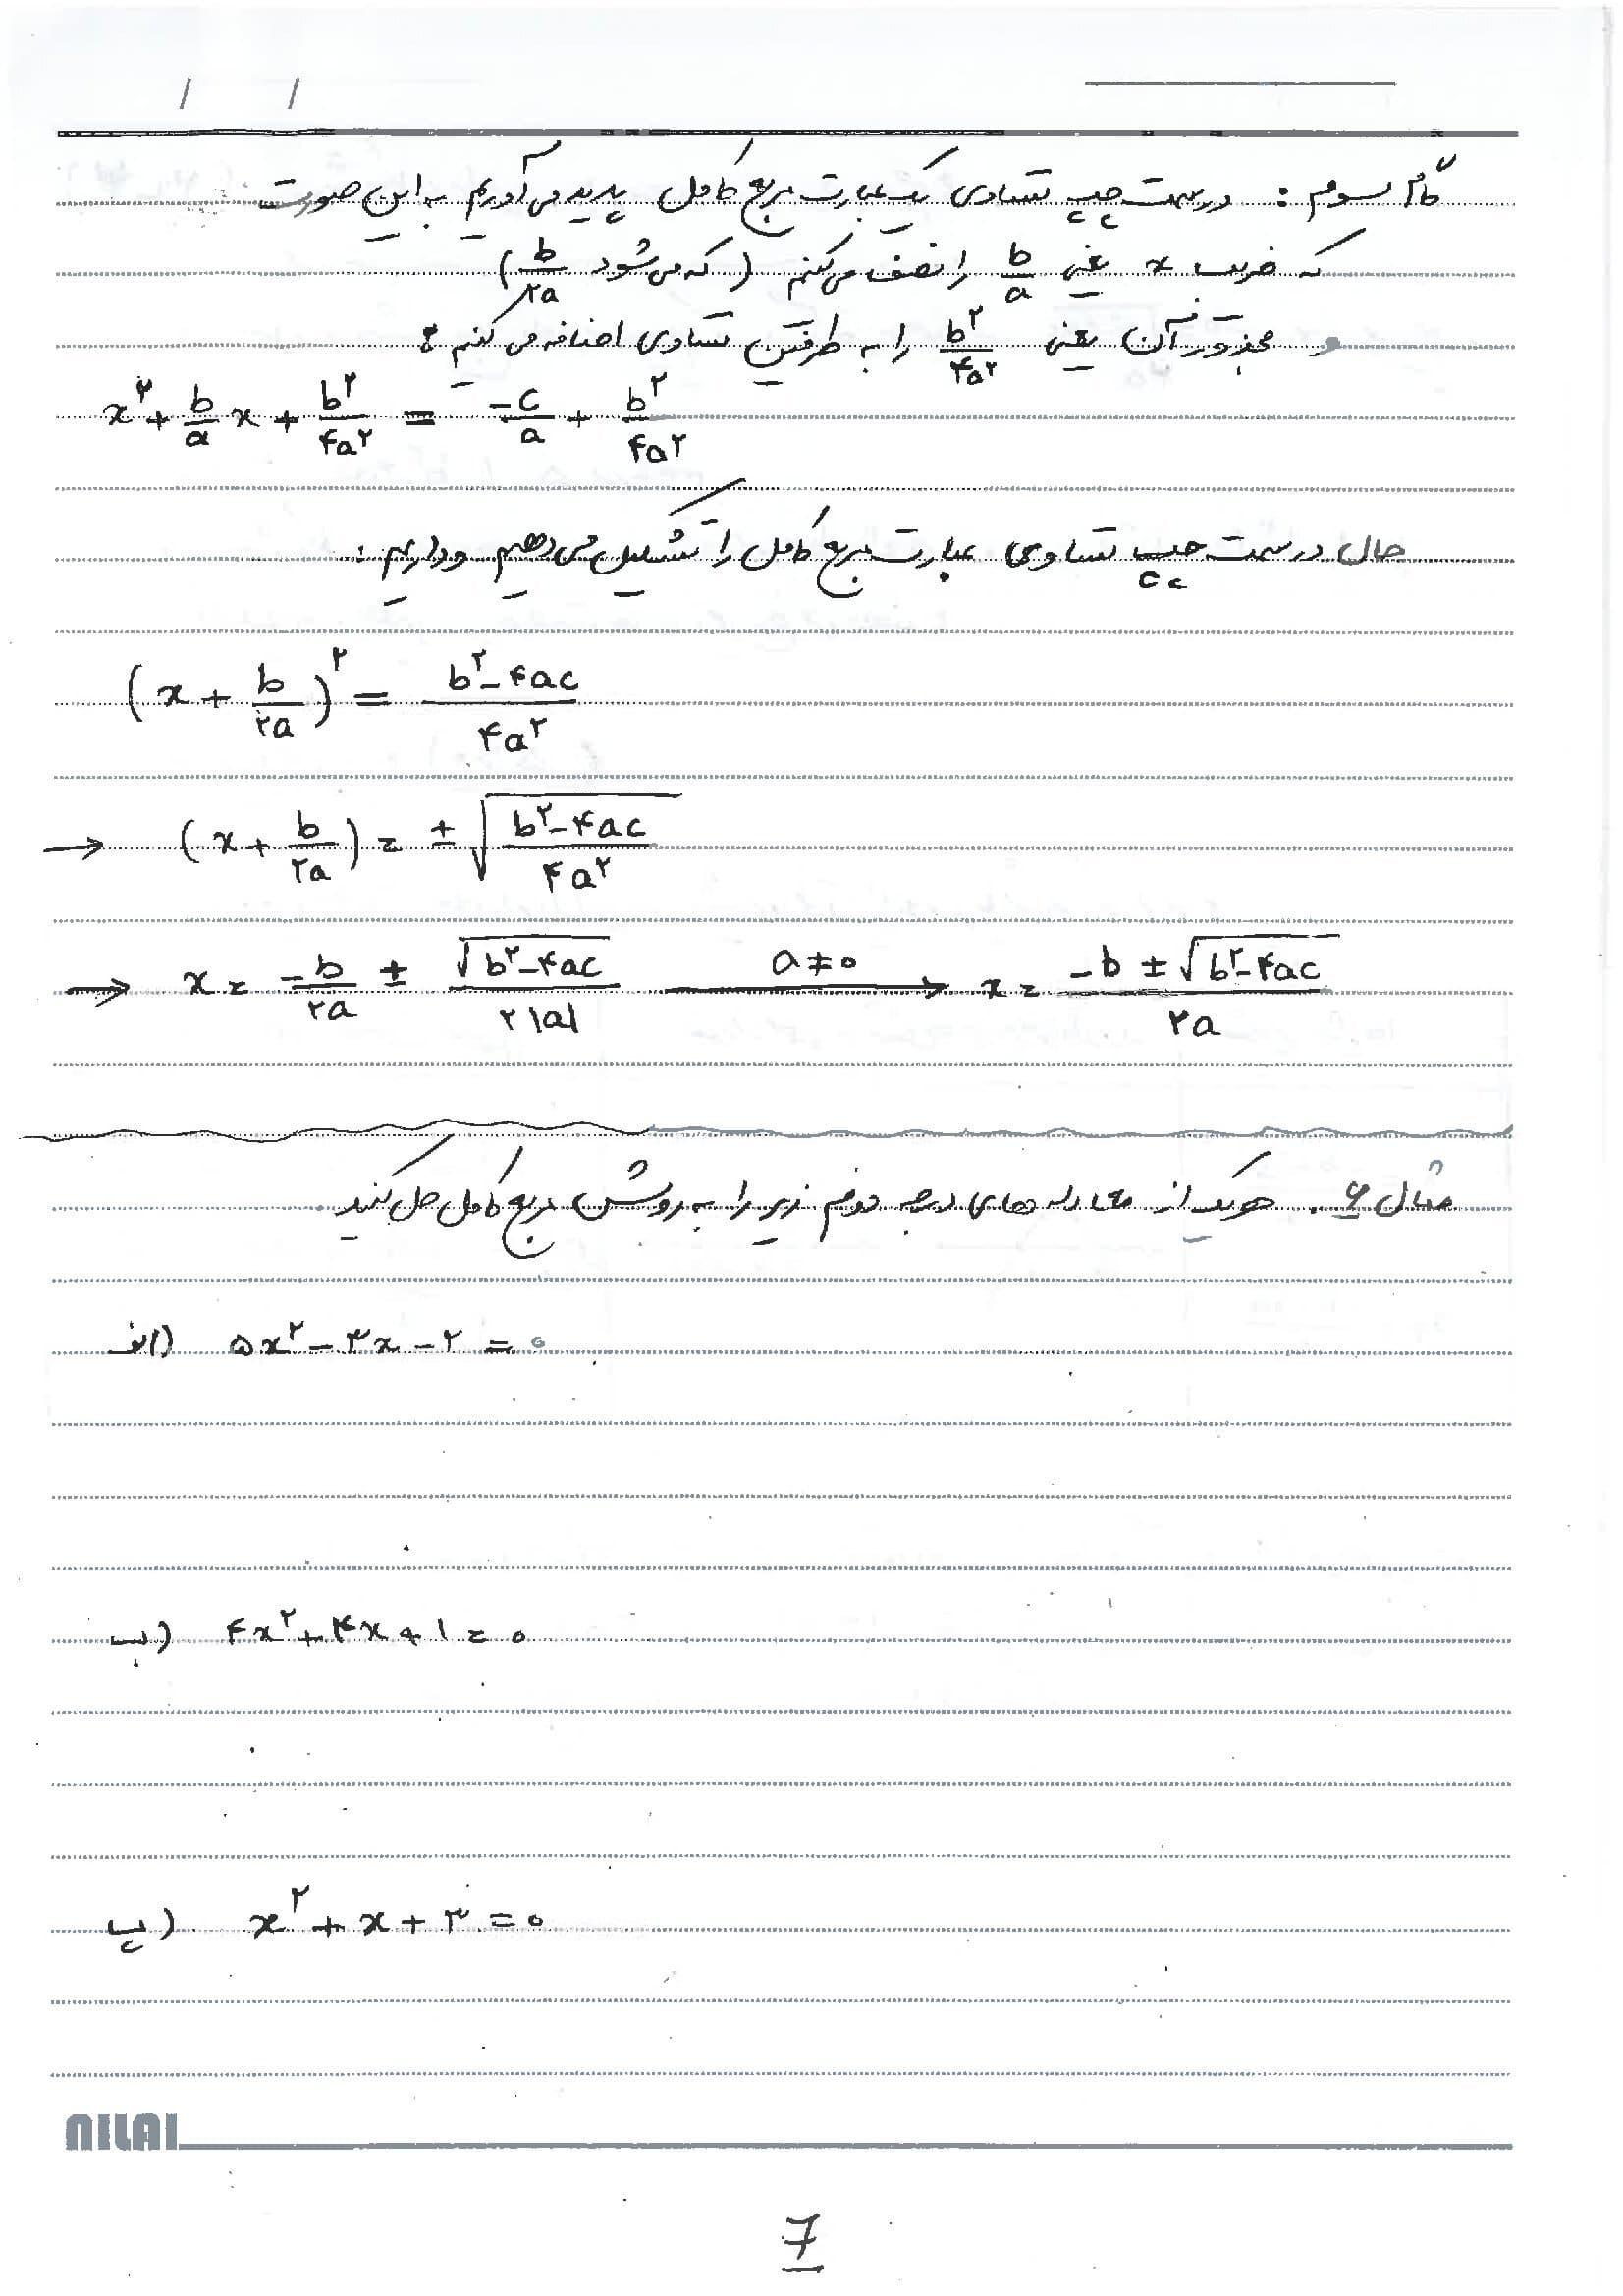 / /
گام سوم : در سمت چپ تساوی یک عبارت مربع کامل پدید می آوریم به این صورت
که ضریب x یعنی b/a را نصف می کنیم ( که می شود b/۲a )
و مجذور آن یعنی b²/۴a² را به طرفین تساوی اضافه می کنیم :
x² + b/a x + b²/۴a² = -c/a + b²/۴a²
حال در سمت چپ تساوی عبارت مربع کامل را تشکیل می دهیم و داریم :
(x + b/۲a)² = b²-۴ac / ۴a²
→ (x + b/۲a) = ± √(b²-۴ac / ۴a²)
→ x = -b/۲a ± √(b²-۴ac) / ۲|a| a≠۰ → x = -b ± √(b²-۴ac) / ۲a
مثال ۶. هر یک از معادله های درجه دوم زیر را به روش مربع کامل حل کنید.
الف) ۵x² - ۳x - ۲ = ۰
ب) ۴x² + ۴x + ۱ = ۰
پ) x² + x + ۳ = ۰
NILAI
7